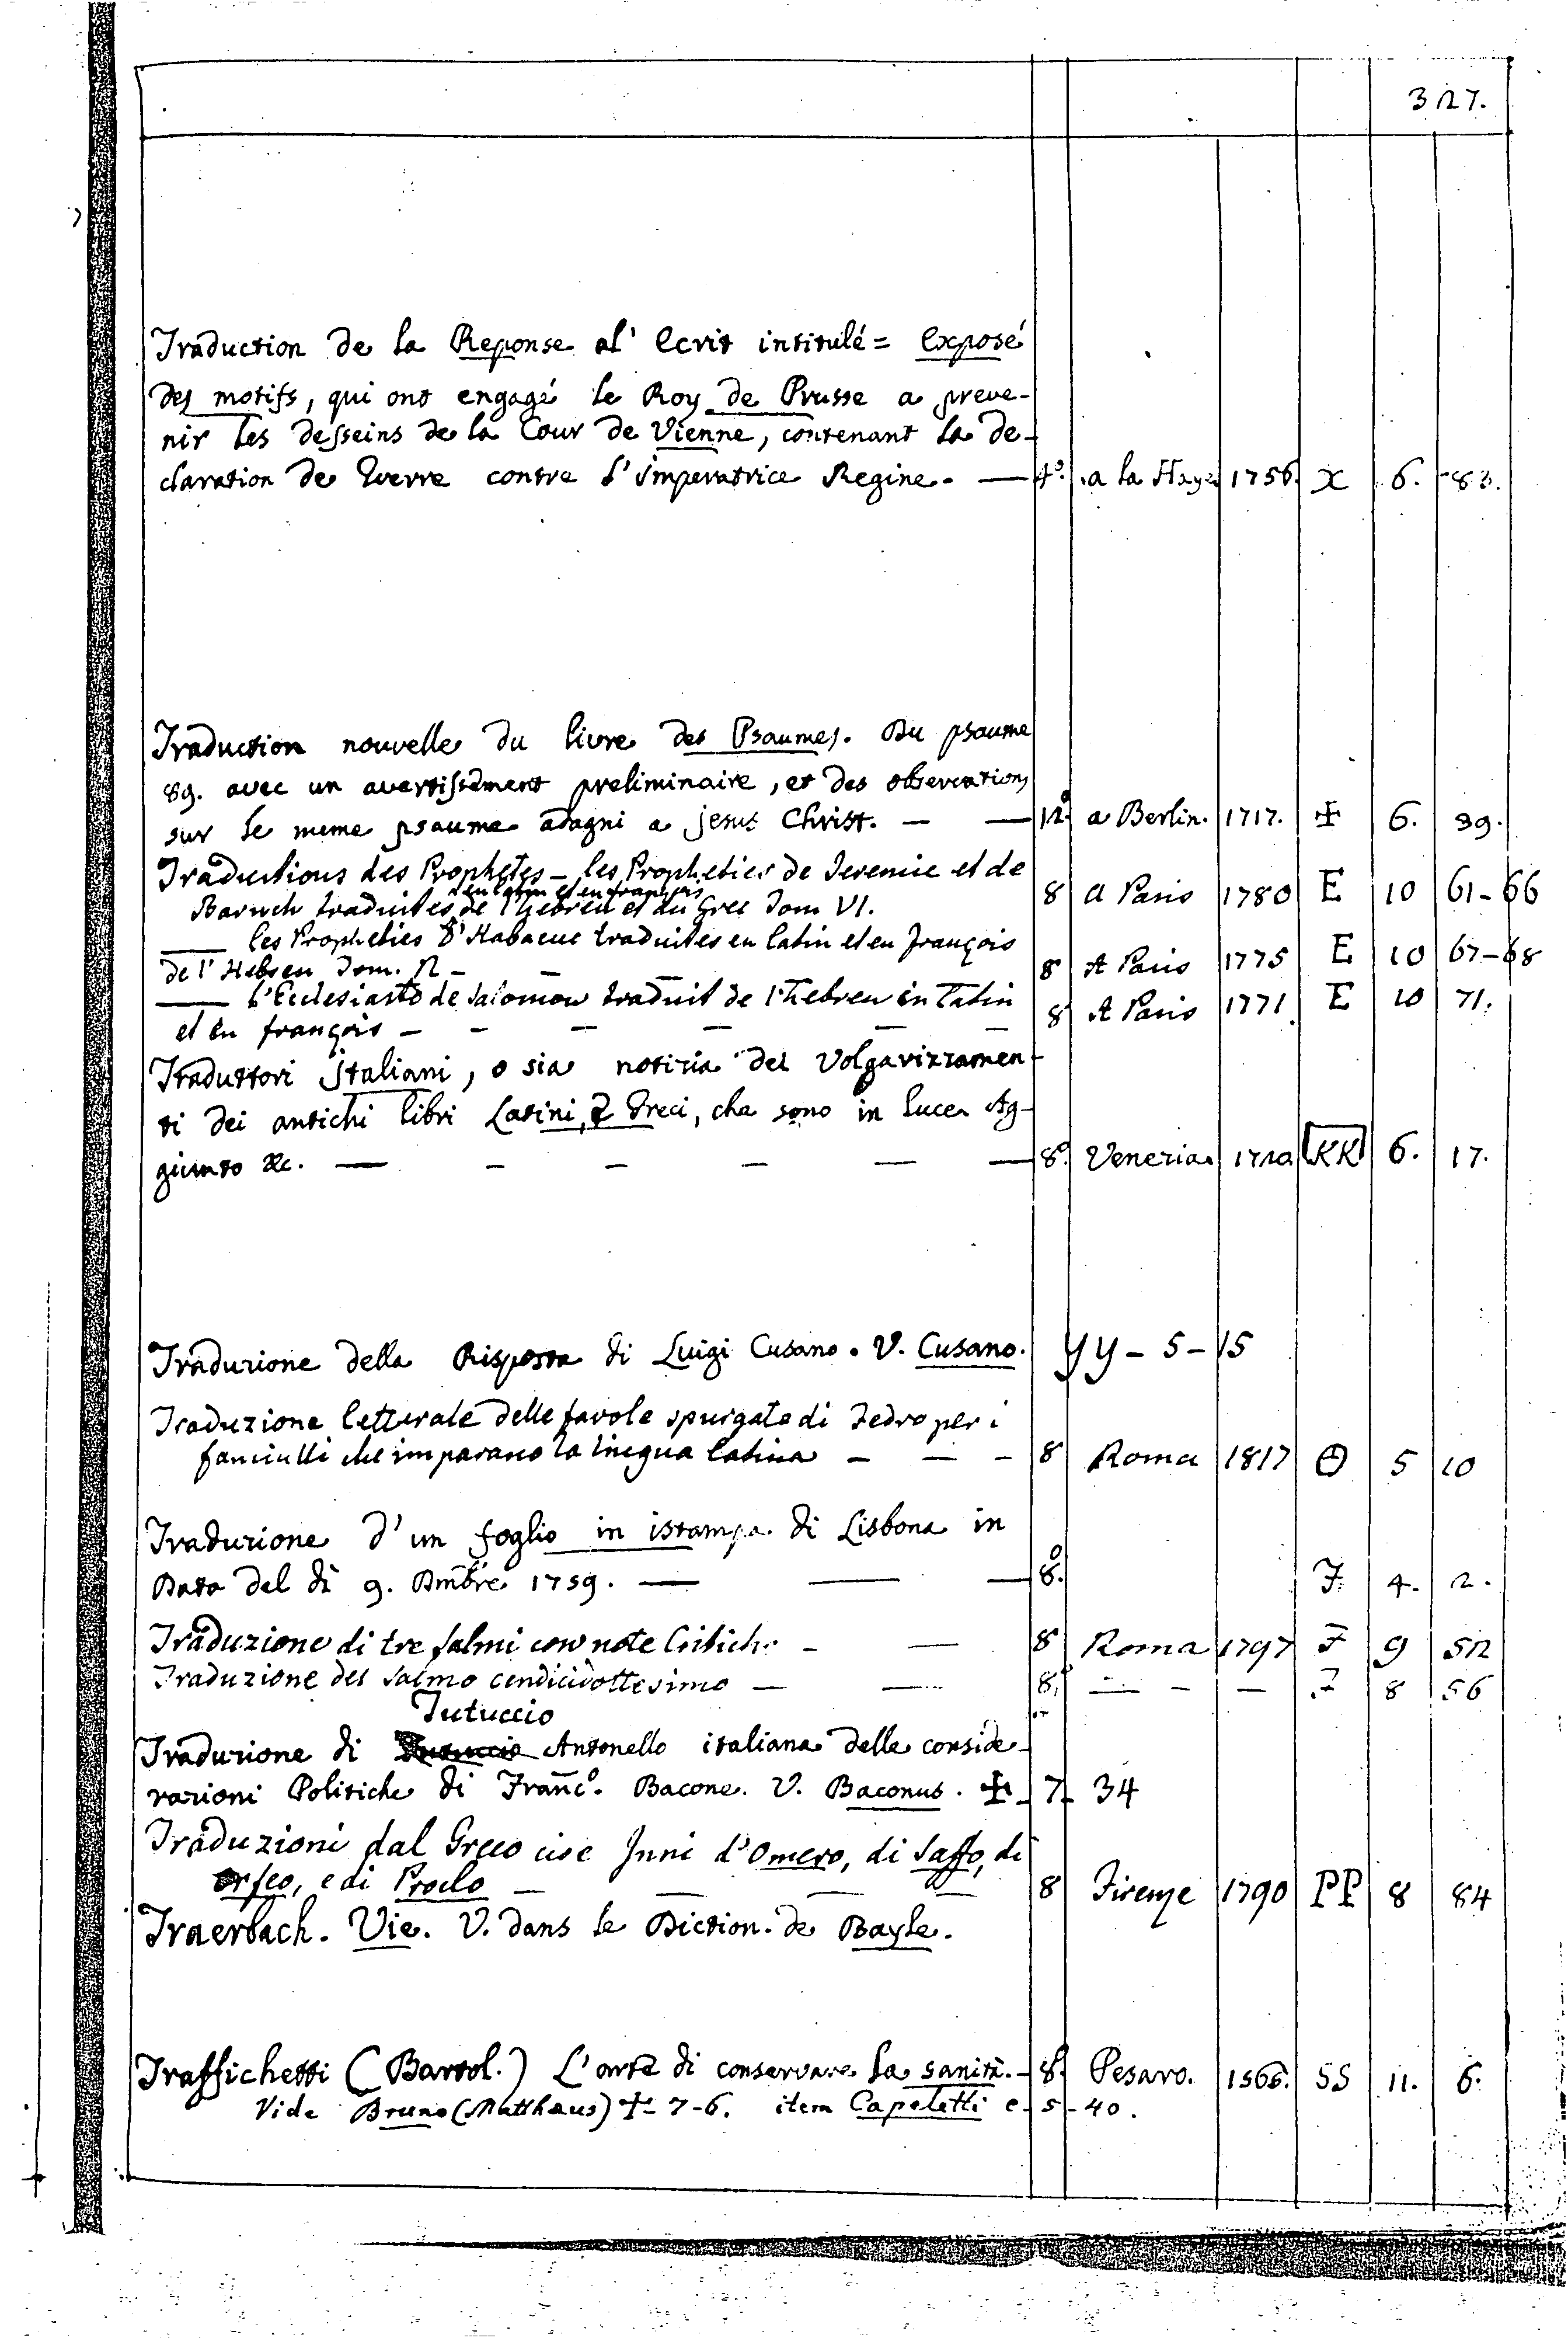 327.
Traduction de la Reponse al' Ecrit intitulé = Exposé
des motifs, qui ont engagé le Roy de Prusse a preve-
nir les desseins de la Cour de Vienne, contenant la de-
claration de Guerre contre l'Imperatrice Regine. — 4º. a la Haye 1756. X 6. 83.
Traduction nouvelle du livre des Psaumes. Du psaume
89. avec un avertissement preliminaire, et des observations
sur le meme psaume a Jesus Christ. — — 12º a Berlin. 1717. ✠ 6. 39.
Traductions des Prophetes – les Propheties de Jeremie et de
en latin et en françois
Baruch traduites de l'hebreu et du Grec Tom VI. 8 a Paris 1780 E 10 61–66
— les Propheties d'Habacuc traduites en latin et en françois
de l'Hebreu Tom. 2 – – – 8 A Paris 1775 E 10 67–68
— l'Ecclesiaste de Salomon traduit de l'hebreu en latin
et en françois – – – – – – 8 A Paris 1771. E 10 71.
Traduttori Italiani, o sia notizia del Volgarizzamen-
ti dei antichi libri Latini, e Greci, che sono in luce. Ag-
giunto &c. — – – – — — 8º. Venezia. 1720. KK 6. 17.
Traduzione della Risposta di Luigi Cusano. V. Cusano. YY – 5 – 15
Traduzione letterale delle favole spurgate di Fedro per i
fanciulli che imparano la lingua latina – — – 8 Roma 1817 5 10
Traduzione d'un foglio in istampa di Lisbona in
Data del dì 9. Dmbre 1759. — — — 8º. F 4. 2.
Traduzione di tre salmi con note Critiche – — 8 Roma 1797 F 9 52
Traduzione del Salmo — — 8. — – — F 8 56
Tutuccio
Traduzione di Antonello italiana delle conside-
razioni Politiche di Francº. Bacone. V. Baconus. ✠ – 7 – 34
Traduzioni dal Greco cioe Inni d'Omero, di Saffo, di
Orfeo, e di Proclo – — — — 8 Firenze 1790 PP 8 84
Traerbach. Vie. V. dans le Diction. de Bayle.
Traffichetti (Bartol.) L'arte di conservare la sanità. – 8º. Pesaro. 1565. SS 11. 6.
Vide Bruno (Matthæus) ✠ – 7 – 6. item Capeletti e – 5 – 40.